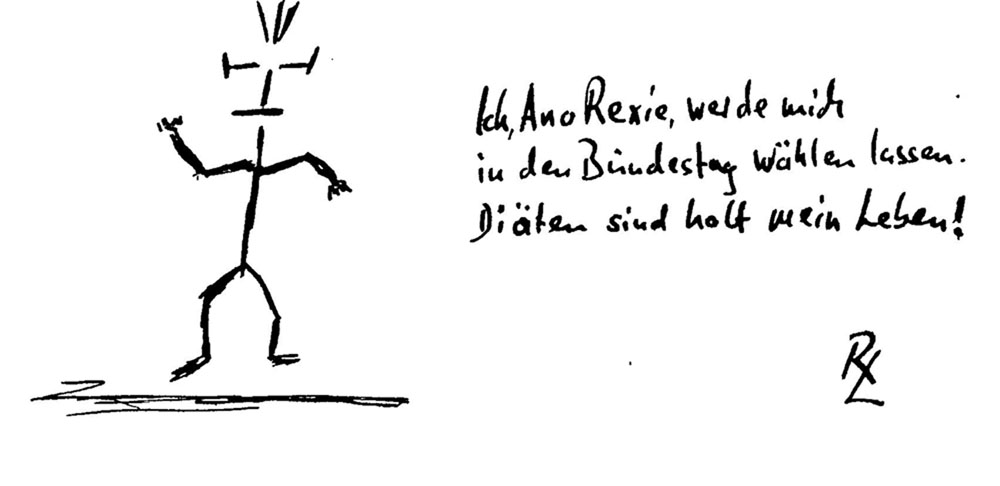 Ich, Ano Rexie, werde mich
in den Bundestag wählen lassen.
Diäten sind halt mein Leben!
RL